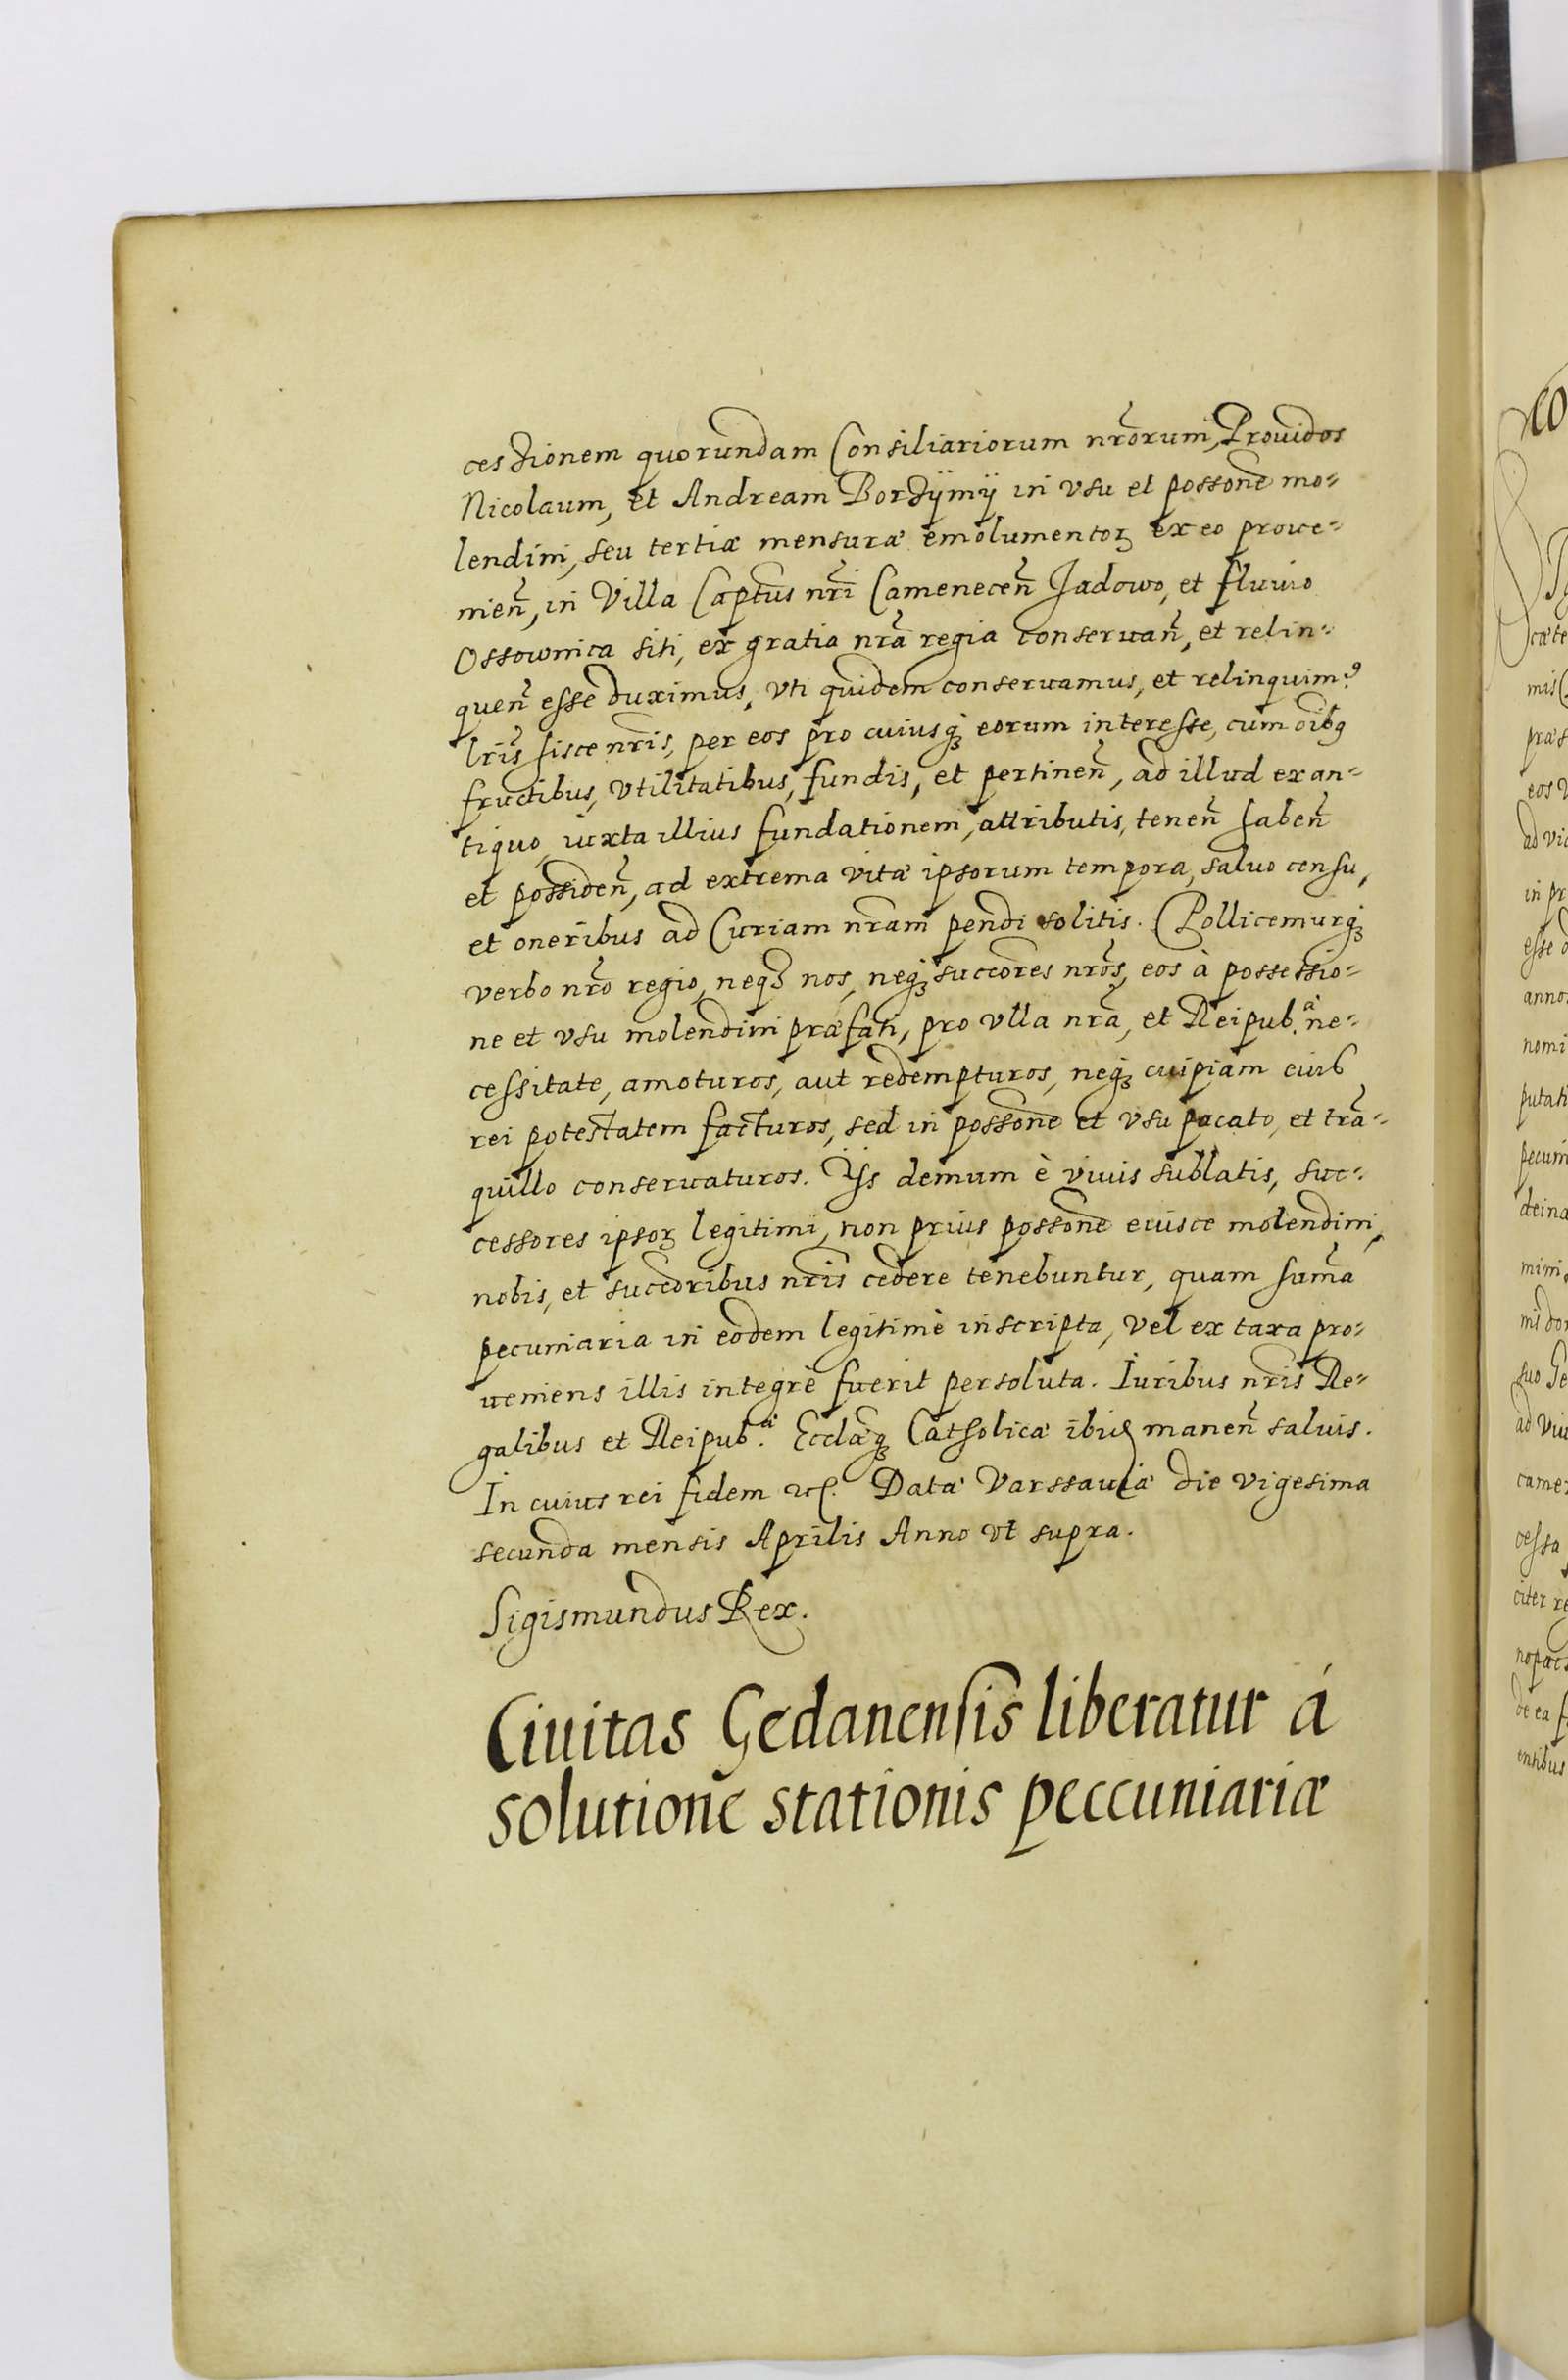 cessionem quorundam Consiliariorum nr̃orum, Prouidos
Nicolaum, et Andream Borzÿmÿ in vsu et possone mo-
lendini, seu tertiæ mensuræ emolumentoꝝ ex eo prove-
nien̄, in Villa Captus nr̃i Camenecen̄ Jadowo, et fluvio
Ossownica siti, ex gratia nr̃a regia conseruan̄, et relin-
quen̄ esse duximus, vti quidem conseruamus, et relinquimꝰ
lr̃is hisce nr̃is, per eos pro cuiusqꝫ eorum interesse, cum oībꝫ
fructibus, vtilitatibus, fundis, et pertinen̄, ad illud ex an-
tiquo, iuxta illius fundationem, attributis, tenen̄ haben̄
et possiden̄, ad extrema vitæ ipsorum tempora, saluo censu,
et oneribus ad Curiam nr̃am pendi solitis. Pollicemurqꝫ
verbo nr̃o regio, neqꝫ nos, neqꝫ succōres nr̃os, eos à possessio-
ne et vsu molendini præfati, pro vlla nr̃a, et Reipub.ᵃᵉ ne-
cessitate, amoturos, aut redempturos, neqꝫ cuipiam eius
rei potestatem facturos, sed in possone et vsu pacato, et trā-
quillo conseruaturos. Ijs demum è viuis sublatis, suc-
cessores ipsoꝝ legitimi, non prius possone eiusce molendini,
nobis, et succōribus nr̃is cedere tenebuntur, quam sum̄a
pecuniaria in eodem legitimè inscripta, vel ex taxa pro-
ueniens illis integrè fuerit persoluta. Iuribus nr̃is Re-
galibus et Reipub.ᵃᵉ Eccl̄æqꝫ Catholicæ ibid manen̄ saluis.
In cuius rei fidem etc. Datæ Varssauiæ die vigesima
secunda mensis Aprilis Anno vt supra.
Sigismundus Rex.
Ciuitas Gedanensis liberatur á
solutione stationis peccuniariæ